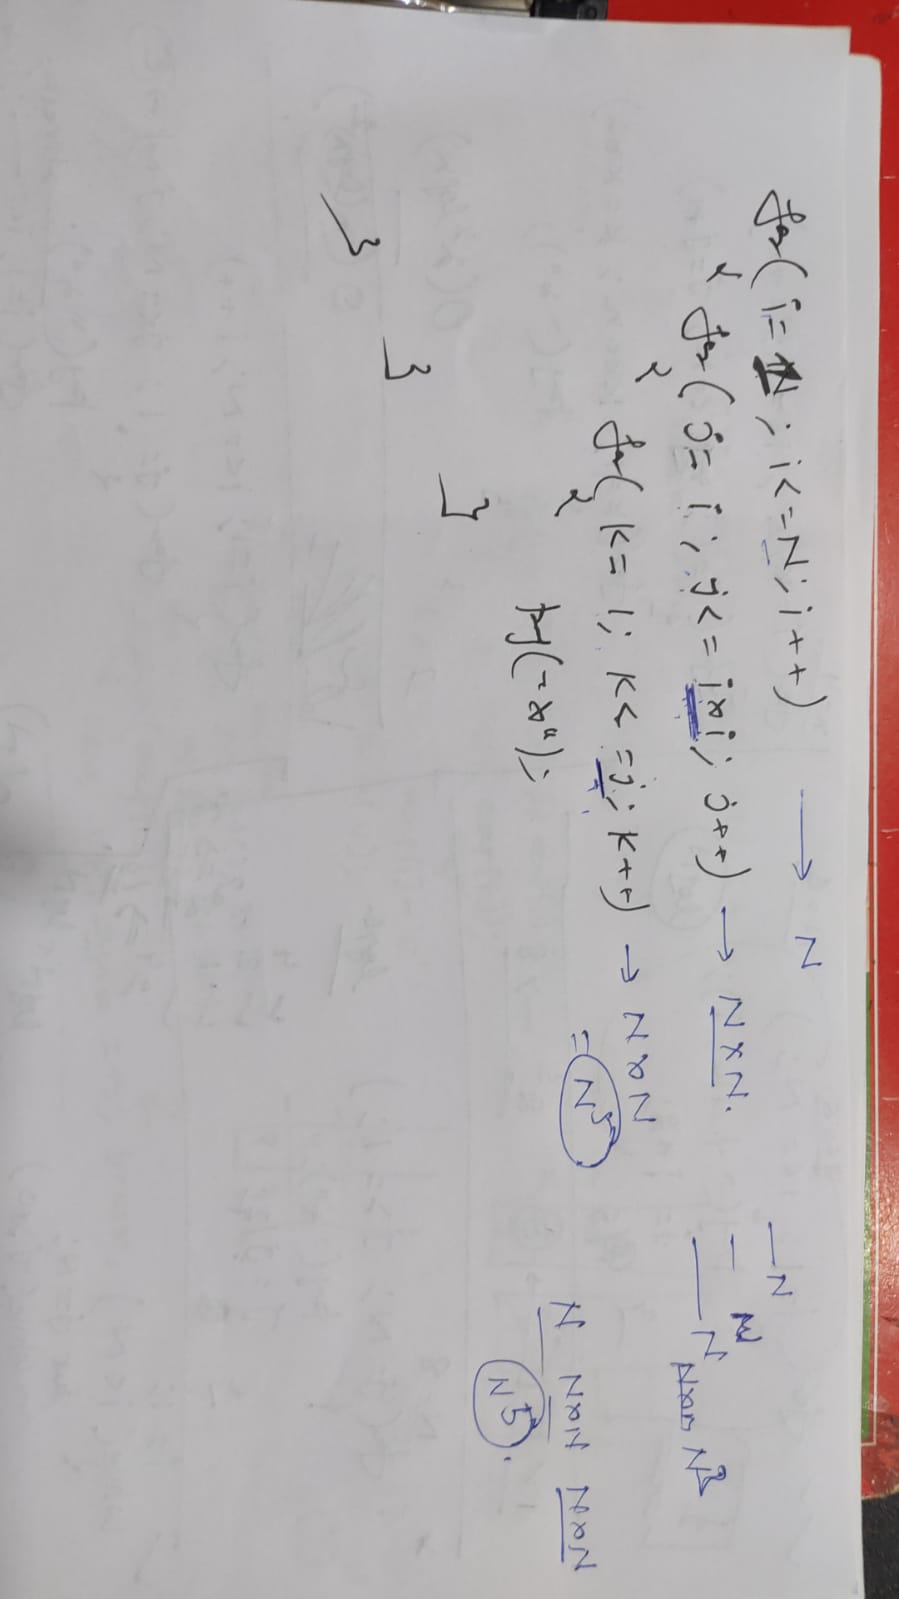 for( i=N; i<=N; i++) → N
{
for( j= i; j<= i*i; j++) → N×N.
{
for( k= 1; k<=j; k++) → N×N
{
= N⁵
pry("*");
}
}
}
N
N
N×N
N
N×N
N×N
N5.